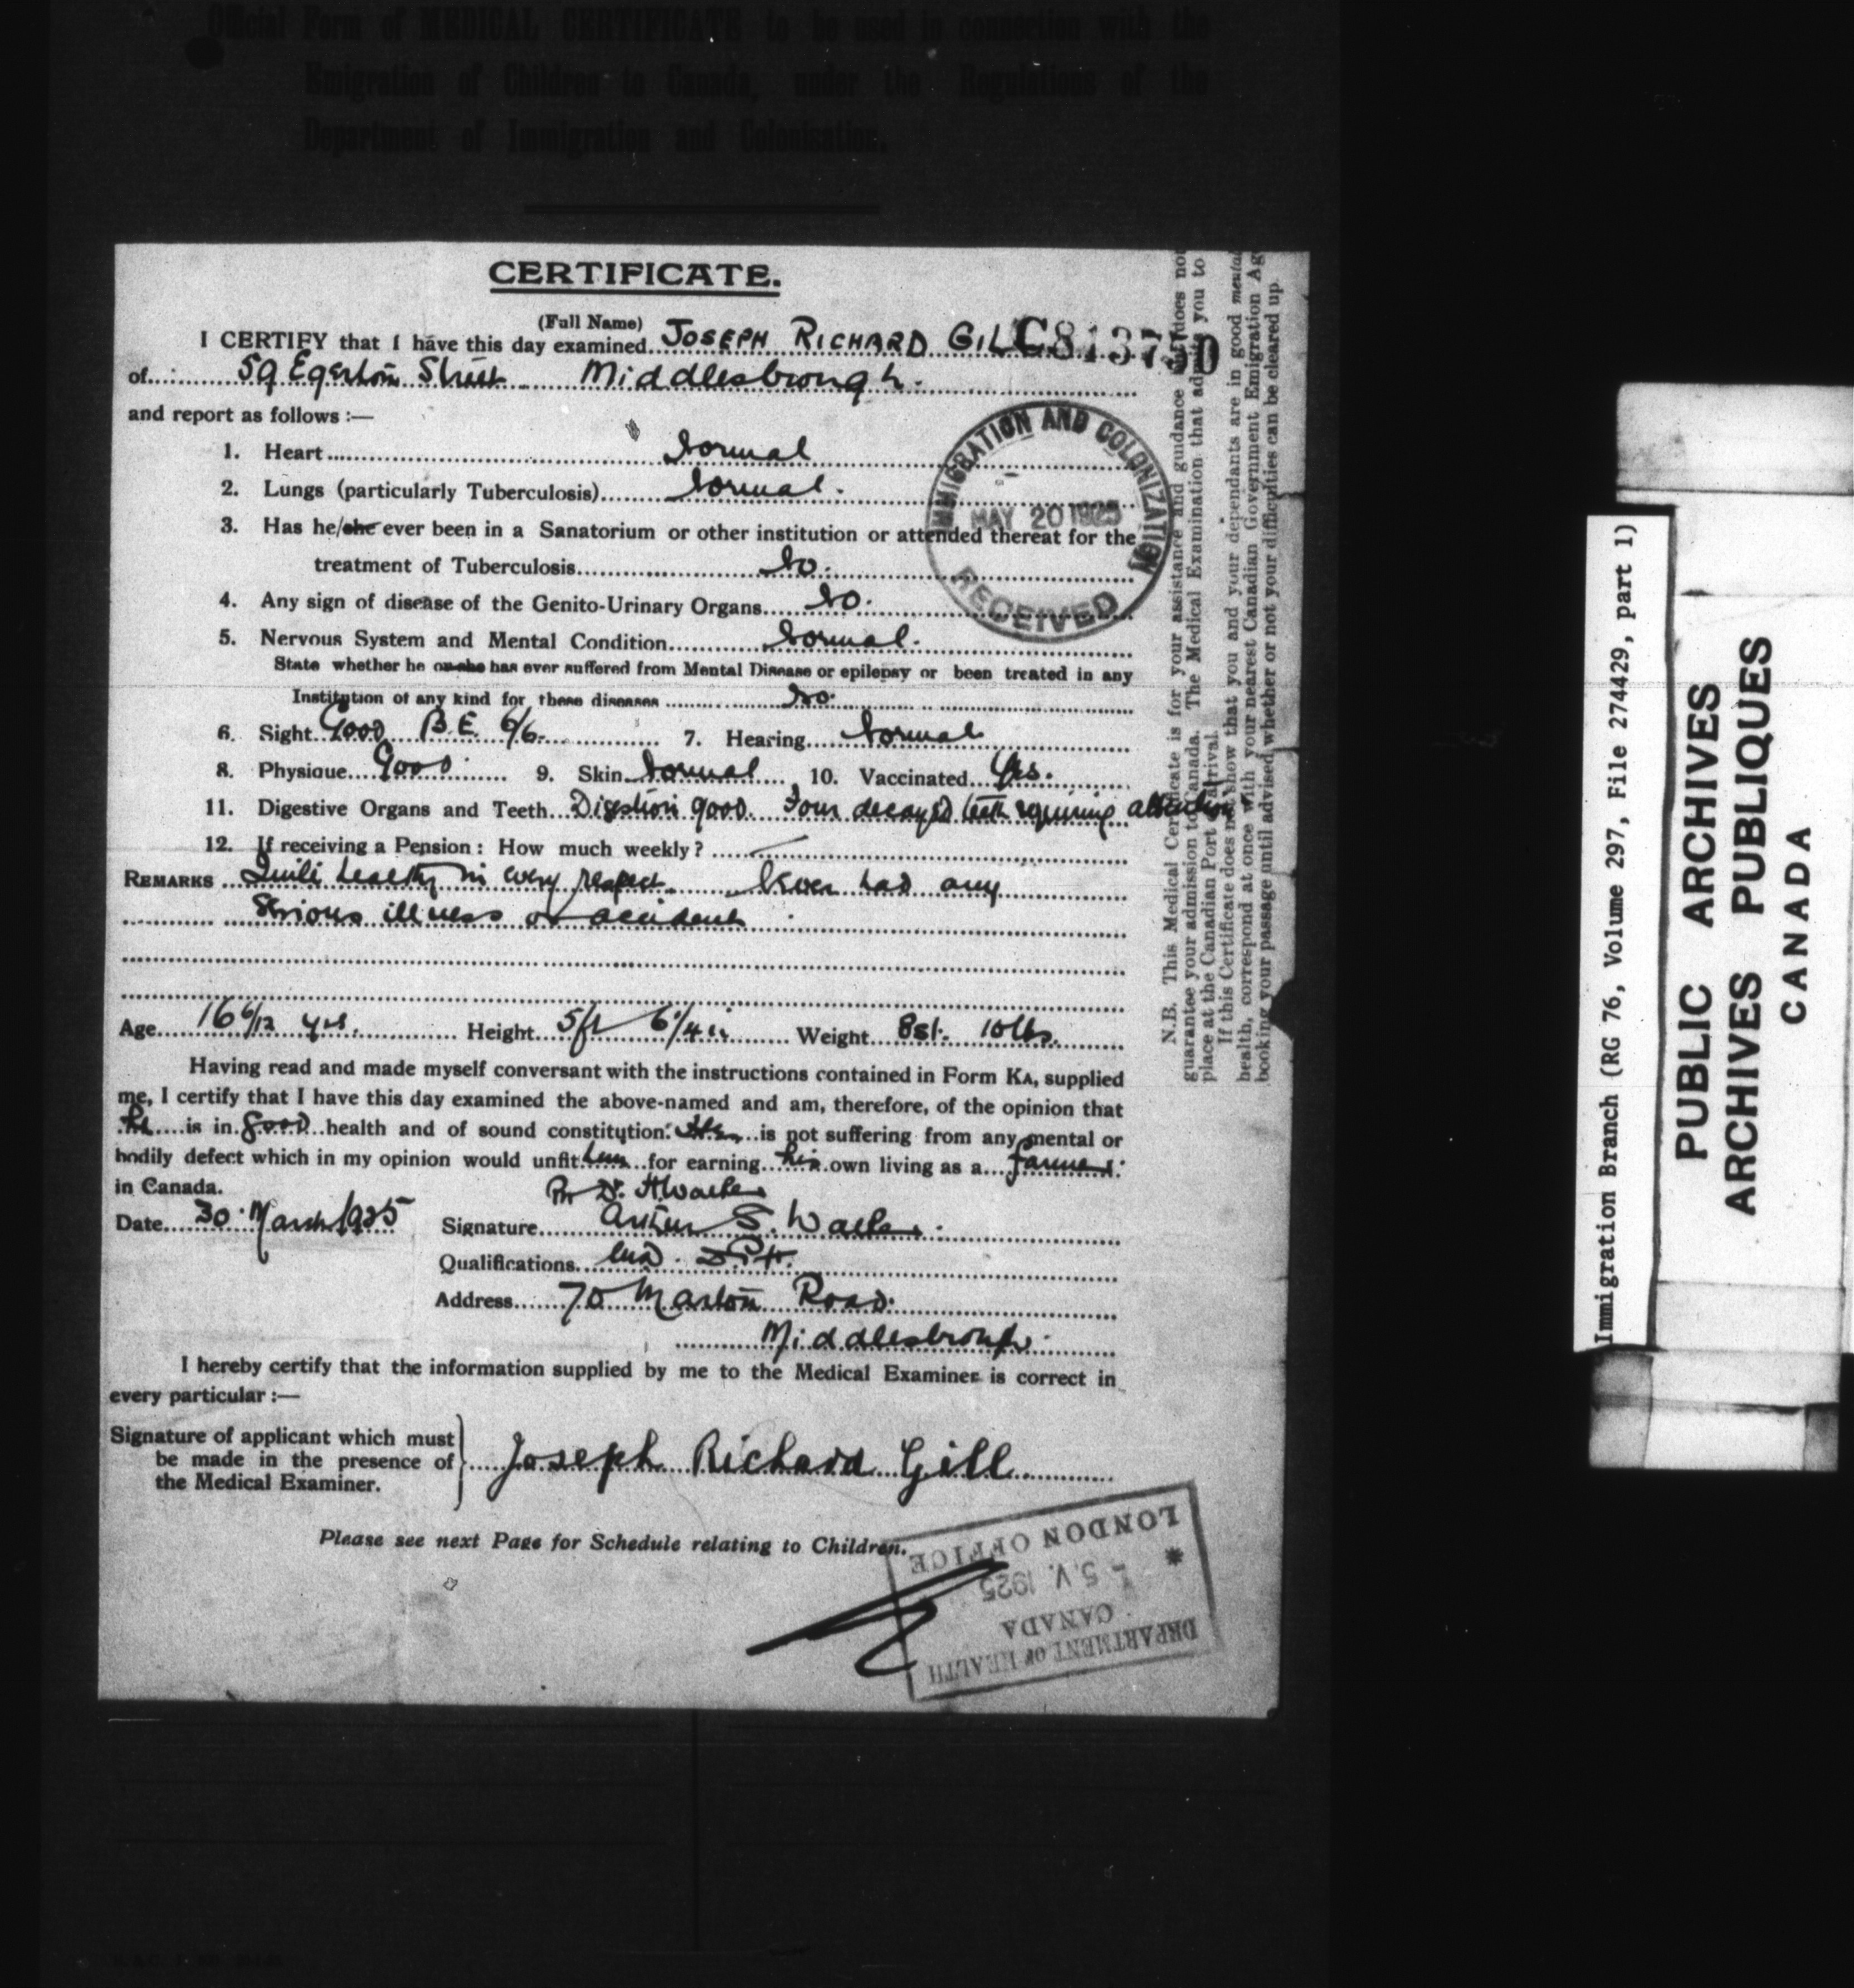 Official Form of MEDICAL CERTIFICATE to be used in connection with the
Emigration of Children to Canada, under the Regulations of the
Department of Immigration and Colonisation.
CERTIFICATE.
(Full Name)
I CERTIFY that I have this day examined JOSEPH RICHARD GILL
C813750
of 59 Egerton Street Middlesbrough.
and report as follows :—
1. Heart Normal
2. Lungs (particularly Tuberculosis) Normal.
3. Has he/she ever been in a Sanatorium or other institution or attended thereat for the
treatment of Tuberculosis No.
4. Any sign of disease of the Genito-Urinary Organs No.
5. Nervous System and Mental Condition Normal.
State whether he or she has ever suffered from Mental Disease or epilepsy or been treated in any
Institution of any kind for these diseases No.
6. Sight Good B.E. 6/6. 7. Hearing Normal
8. Physique Good. 9. Skin Normal 10. Vaccinated Yes.
11. Digestive Organs and Teeth Digestion good. Four decayed teeth requiring attention
12. If receiving a Pension : How much weekly ?
REMARKS Quite healthy in every respect. Never had any
serious illness or accident
Age 16 6/12 yrs. Height 5ft 6 1/4 in Weight 8st. 10lbs.
Having read and made myself conversant with the instructions contained in Form KA, supplied
me, I certify that I have this day examined the above-named and am, therefore, of the opinion that
he is in good health and of sound constitution. He is not suffering from any mental or
bodily defect which in my opinion would unfit him for earning his own living as a farmer.
in Canada.
Per Dr. H Walker
Date 30 March 1925 Signature Arthur S. Walker.
Qualifications MD. D.P.H.
Address 70 Marton Road.
Middlesbrough.
I hereby certify that the information supplied by me to the Medical Examiner is correct in
every particular :—
Signature of applicant which must
be made in the presence of
the Medical Examiner.
Joseph Richard Gill
Please see next Page for Schedule relating to Children.
IMMIGRATION AND COLONIZATION
MAY 20 1925
RECEIVED
DEPARTMENT OF HEALTH
CANADA
5.V.1925
* LONDON OFFICE
N.B. This Medical Certificate is for your assistance and guidance does not
guarantee your admission to Canada. The Medical Examination that admits you to
place at the Canadian Port arrival.
If this Certificate does not show that you and your dependants are in good mental
health, correspond at once with your nearest Canadian Government Emigration Ag
booking your passage until advised whether or not your difficulties can be cleared up.
Immigration Branch (RG 76, Volume 297, File 274429, part 1)
PUBLIC ARCHIVES
ARCHIVES PUBLIQUES
CANADA